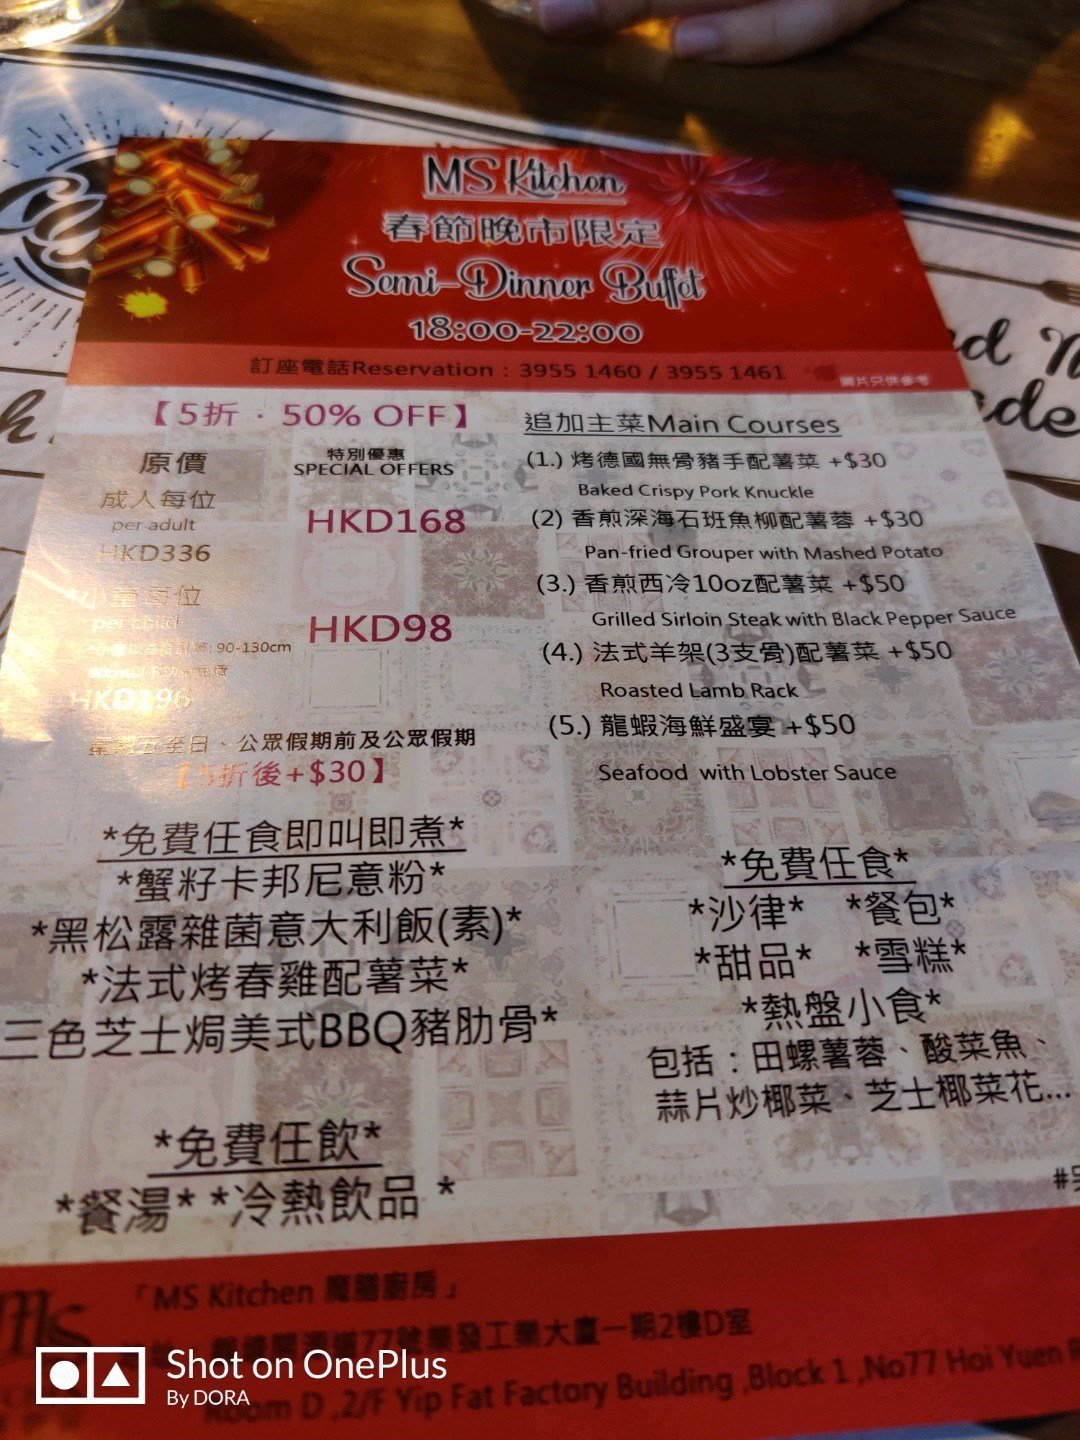 MS Kitchen
春節晚市限定
Semi-Dinner Buffet
18:00-22:00
訂座電話Reservation : 3955 1460 / 3955 1461
圖片只供參考
【5折 · 50% OFF】
原價
特別優惠
SPECIAL OFFERS
成人每位
per adult
HKD336
HKD168
小童每位
per child
90-130cm
HKD196
HKD98
星期五至日、公眾假期前及公眾假期
【5折後+$30】
追加主菜Main Courses
(1.) 烤德國無骨豬手配薯菜 +$30
Baked Crispy Pork Knuckle
(2) 香煎深海石班魚柳配薯蓉 +$30
Pan-fried Grouper with Mashed Potato
(3.) 香煎西冷10oz配薯菜 +$50
Grilled Sirloin Steak with Black Pepper Sauce
(4.) 法式羊架(3支骨)配薯菜 +$50
Roasted Lamb Rack
(5.) 龍蝦海鮮盛宴 +$50
Seafood with Lobster Sauce
*免費任食即叫即煮*
*蟹籽卡邦尼意粉*
*黑松露雜菌意大利飯(素)*
*法式烤春雞配薯菜*
三色芝士焗美式BBQ豬肋骨*
*免費任飲*
*餐湯* *冷熱飲品 *
*免費任食*
*沙律* *餐包*
*甜品* *雪糕*
*熱盤小食*
包括：田螺薯蓉、酸菜魚、
蒜片炒椰菜、芝士椰菜花...
「MS Kitchen 魔膳廚房」
77號業發工業大廈一期2樓D室
Room D ,2/F Yip Fat Factory Building ,Block 1 ,No77 Hoi Yuen
Shot on OnePlus
By DORA